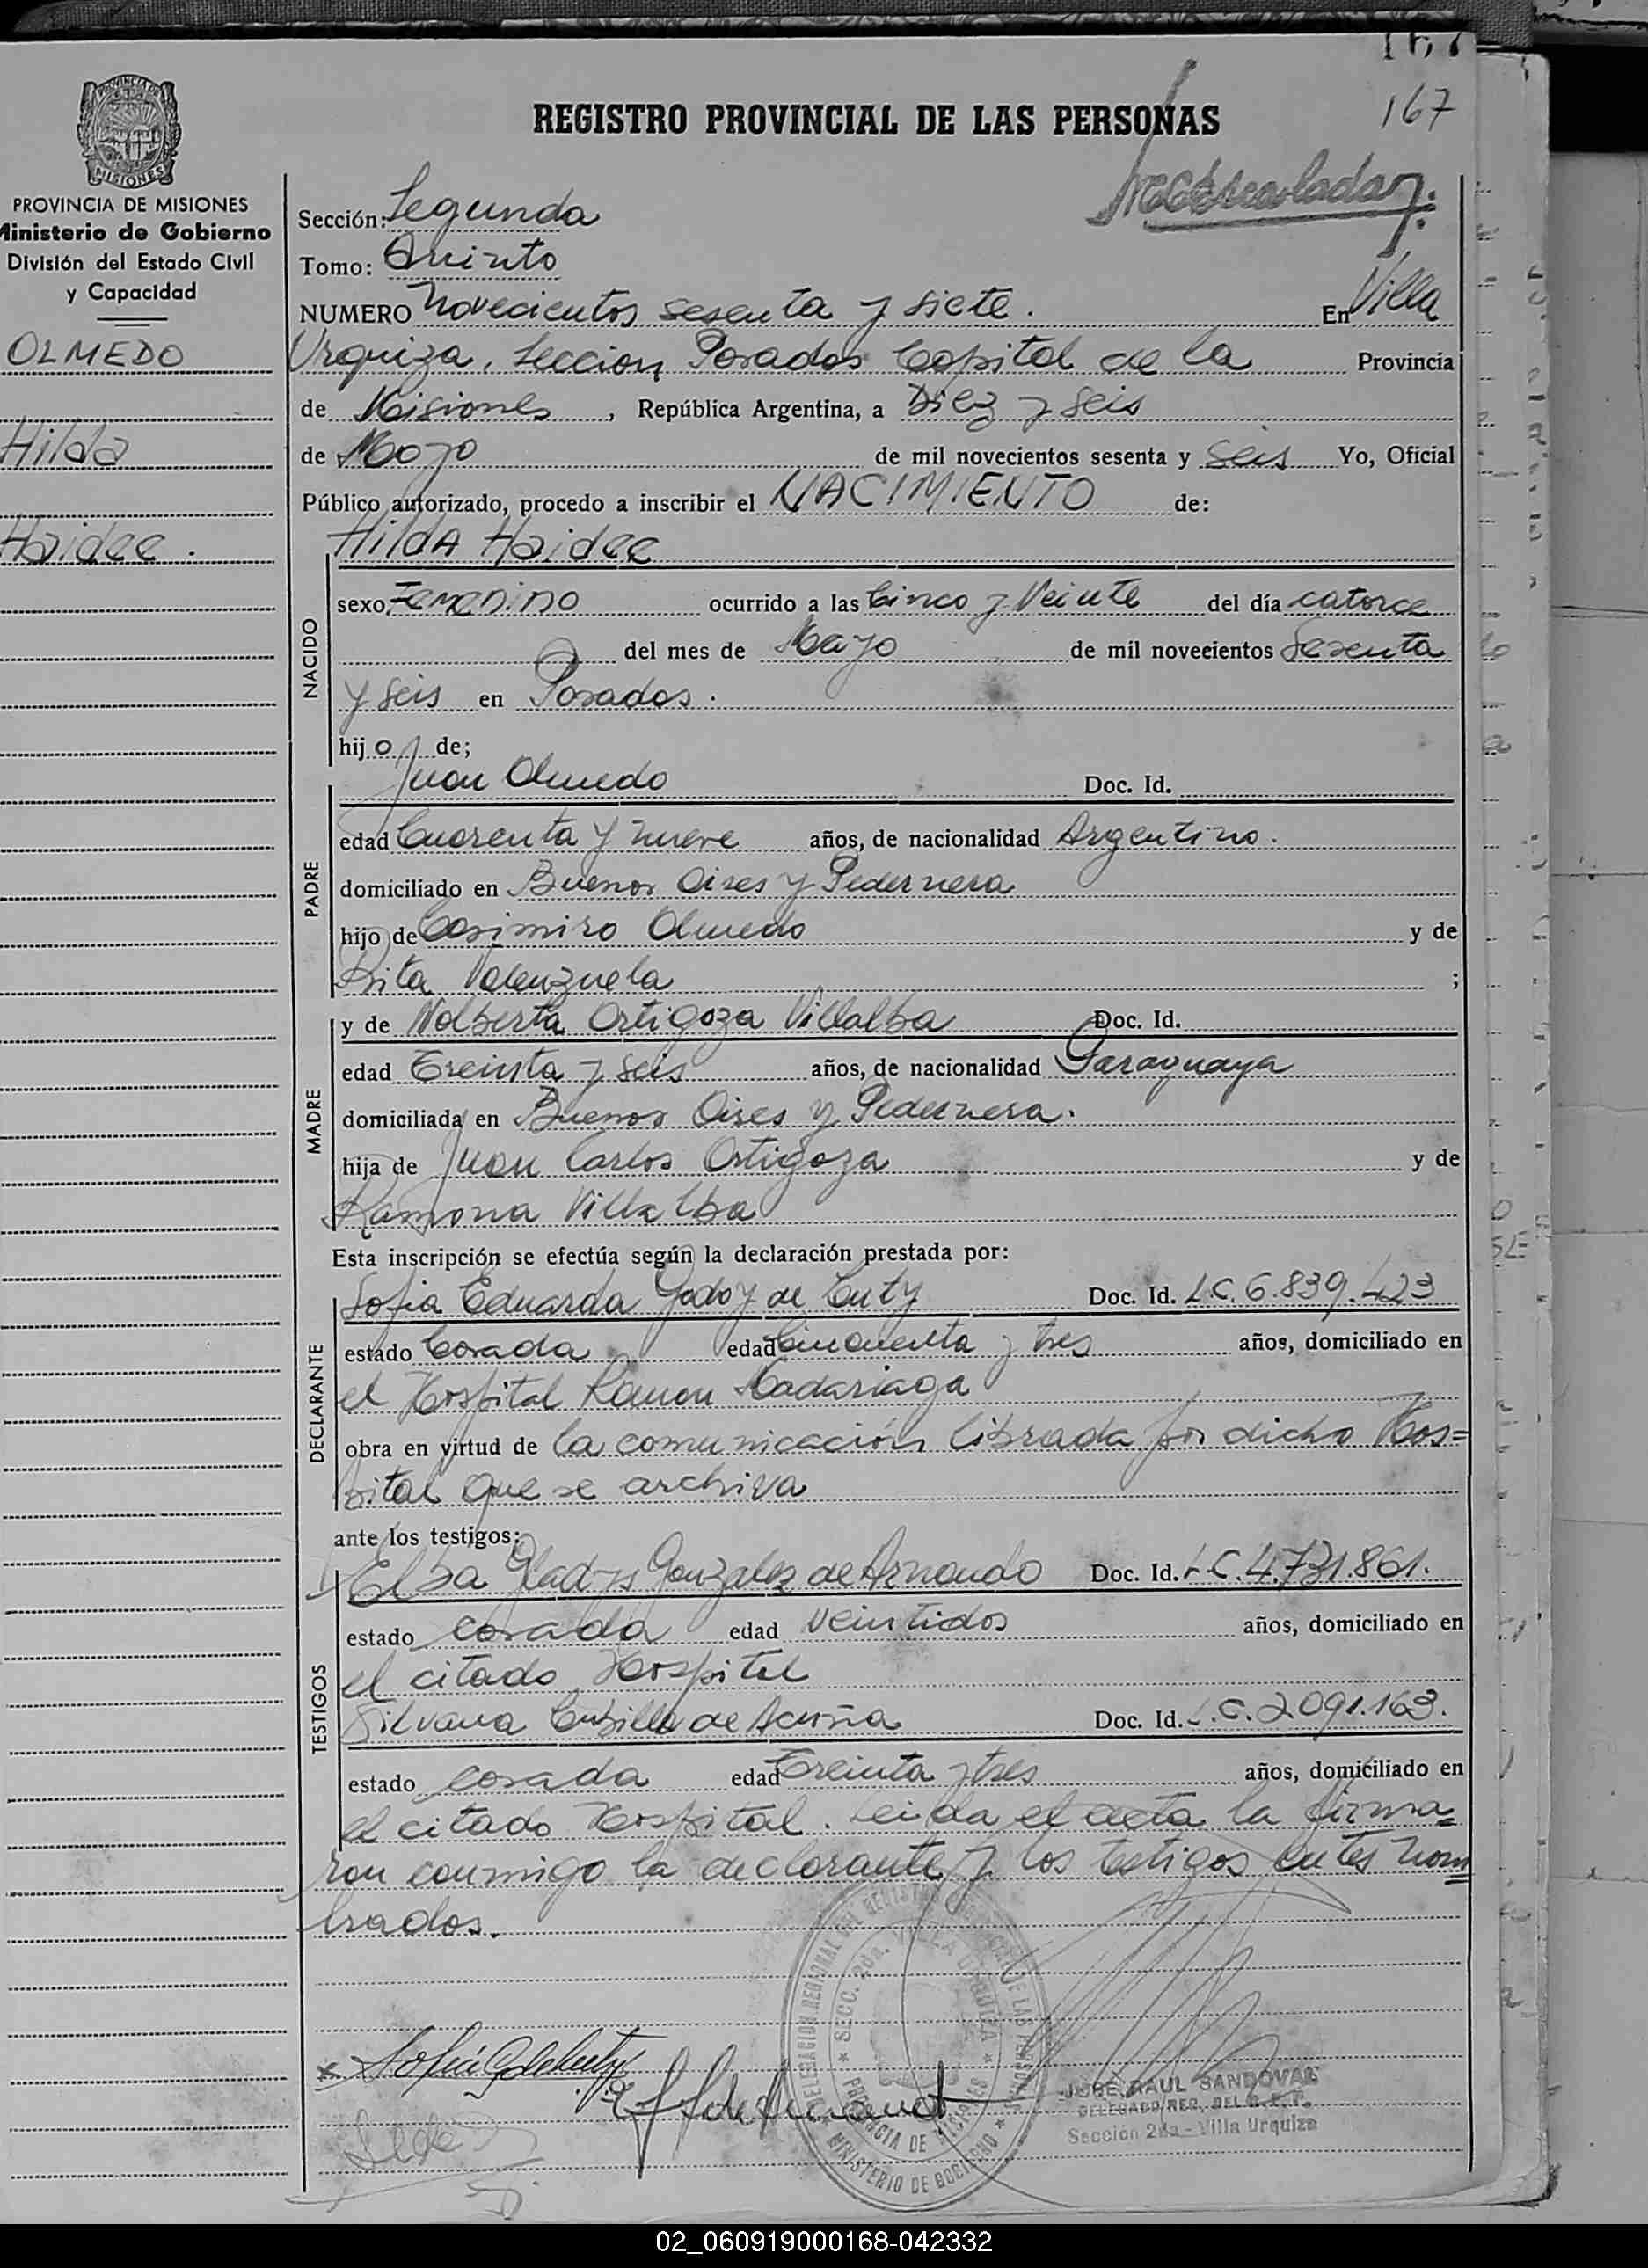 167
REGISTRO PROVINCIAL DE LAS PERSONAS
PROVINCIA DE MISIONES
Ministerio de Gobierno
División del Estado Civil
y Capacidad
OLMEDO
Hilda
Haidee.
Sección: Segunda
Tomo: Quinto
NUMERO Novecientos sesenta y siete. En Villa
Urquiza, Seccion Posadas Capital de la Provincia
de Misiones, República Argentina, a Diez y seis
de Mayo de mil novecientos sesenta y seis Yo, Oficial
Público autorizado, procedo a inscribir el NACIMIENTO de:
Hilda Haidee
NACIDO
sexo Femenino ocurrido a las Cinco y Veinte del día catorce
del mes de Mayo de mil novecientos Sesenta
y seis en Posadas.
hijo de;
PADRE
Juan Olmedo Doc. Id.
edad Cuarenta y nueve años, de nacionalidad Argentino.
domiciliado en Buenos Aires y Pedernera
hijo de Casimiro Olmedo y de
Rita Valenzuela ;
MADRE
y de Nolberta Ortigoza Villalba Doc. Id.
edad Treinta y seis años, de nacionalidad Paraguaya
domiciliada en Buenos Aires y Pedernera.
hija de Juan Carlos Ortigoza y de
Ramona Villalba
Esta inscripción se efectúa según la declaración prestada por:
DECLARANTE
Sofia Eduarda Godoy de Cuty Doc. Id. L.C. 6.839.423
estado Casada edad Cincuenta y tres años, domiciliado en
el Hospital Ramon Madariaga
obra en virtud de la comunicación librada por dicho Hos=
pital que se archiva
ante los testigos:
TESTIGOS
Elsa Gladys Gonzalez de Doc. Id. L.C. 4.731.861.
estado casada edad veintidos años, domiciliado en
el citado Hospital
Silvana de Acuña Doc. Id. L.C. 2.091.163.
estado casada edad Treinta y tres años, domiciliado en
el citado Hospital. Leida el acta la firma=
ron conmigo la declarante y los testigos antes nom=
brados.
DELEGACION REGIONAL DEL REGISTRO PROVINCIAL DE LAS PERSONAS
SECC. 2da. VILLA URQUIZA
PROVINCIA DE MISIONES
MINISTERIO DE GOBIERNO
JOSE RAUL SANDOVAL
DELEGADO REG. DEL R.P.P.
Sección 2da - Villa Urquiza
02_060919000168-042332